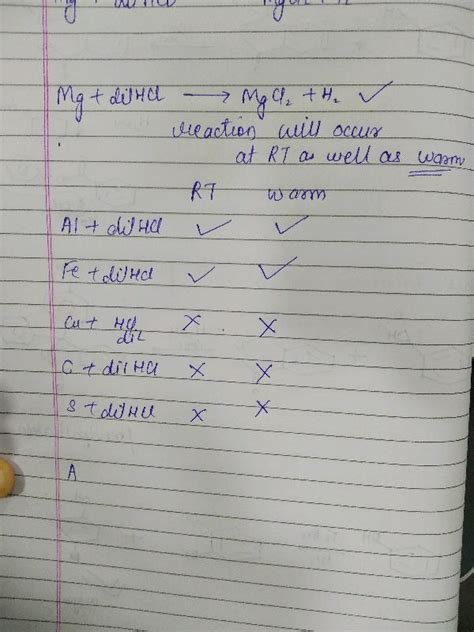 Mg + dil HCl ⟶ MgCl₂ + H₂ ✓
reaction will occur
at RT as well as warm
RT warm
Al + dil HCl ✓ ✓
Fe + dil HCl ✓ ✓
Cu + HCl × ×
dil
C + dil HCl × ×
S + dil HCl × ×
A